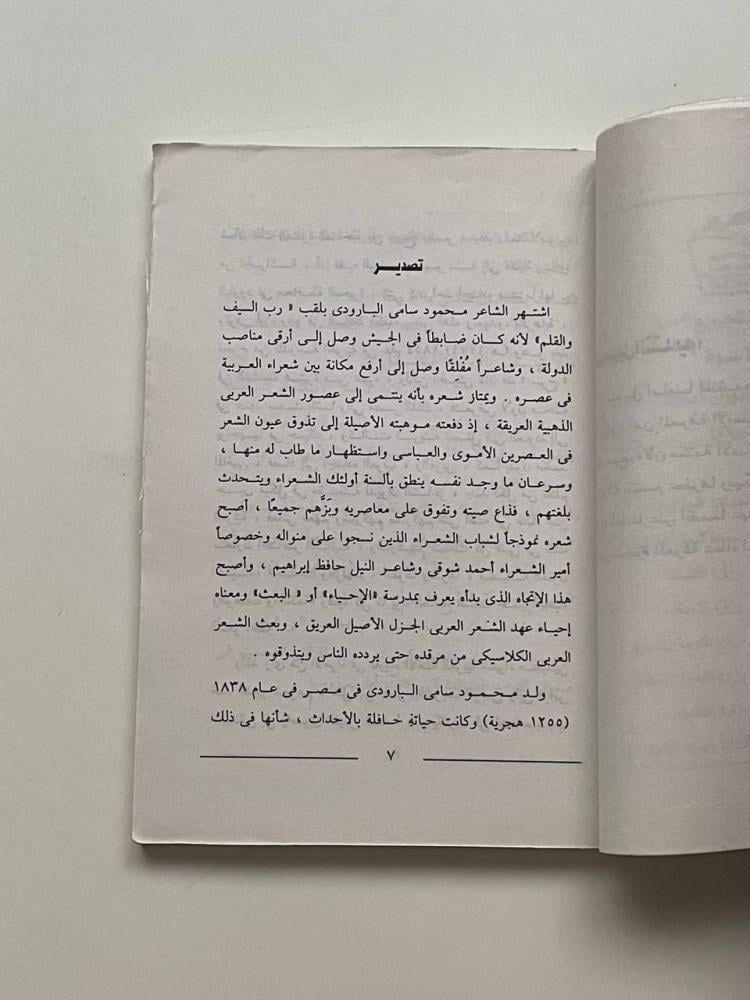 تصديـر
اشتـهر الشاعر محمود سامى البـارودى بلقب « رب السيف
والقلم» لأنه كـان ضـابطاً فى الجـيش وصل إلى أرقى مناصب
الدولة ، وشاعـراً مُفْلِقًا وصل إلى أرفع مكانة بين شعراء العربية
فى عصـره . ويمتاز شـعره بأنه ينتـمى إلى عصـور الشعر العربى
الذهبية العريقة ، إذ دفعته مـوهبته الأصيلة إلى تذوق عيون الشعر
فى العصرين الأموى والعباسى واستظهار ما طاب له منهـا ،
وسـرعـان ما وجـد نفسـه ينطق بألسنة أولئك الشـعراء ويتـحدث
بلغتهم ، فذاع صيته وتفوق على معاصريه وبَزَّهم جميعًا ، أصبح
شعره نموذجاً لشباب الشعـراء الذين نسـجوا على منواله وخصوصاً
أمير الشـعراء أحمد شوقى وشاعـر النيل حافظ إبراهيم ، وأصبح
هذا الإتجاه الذى بدأه يعرف بمدرسة «الإحياء» أو « البعث» ومعناه
إحيـاء عهد الشَـعر العربى الجـزل الأصيل العريق ، وبعث الشعـر
العربى الكلاسيكى من مرقده حتى يردده الناس ويتذوقوه .
ولـد محـمـود سامى البـارودى فى مـصـر فى عـام ١٨٣٨
(١٢٥٥ هجرية) وكانت حياتهٍ حـافلة بالأحداث ، شأنها فى ذلك
٧